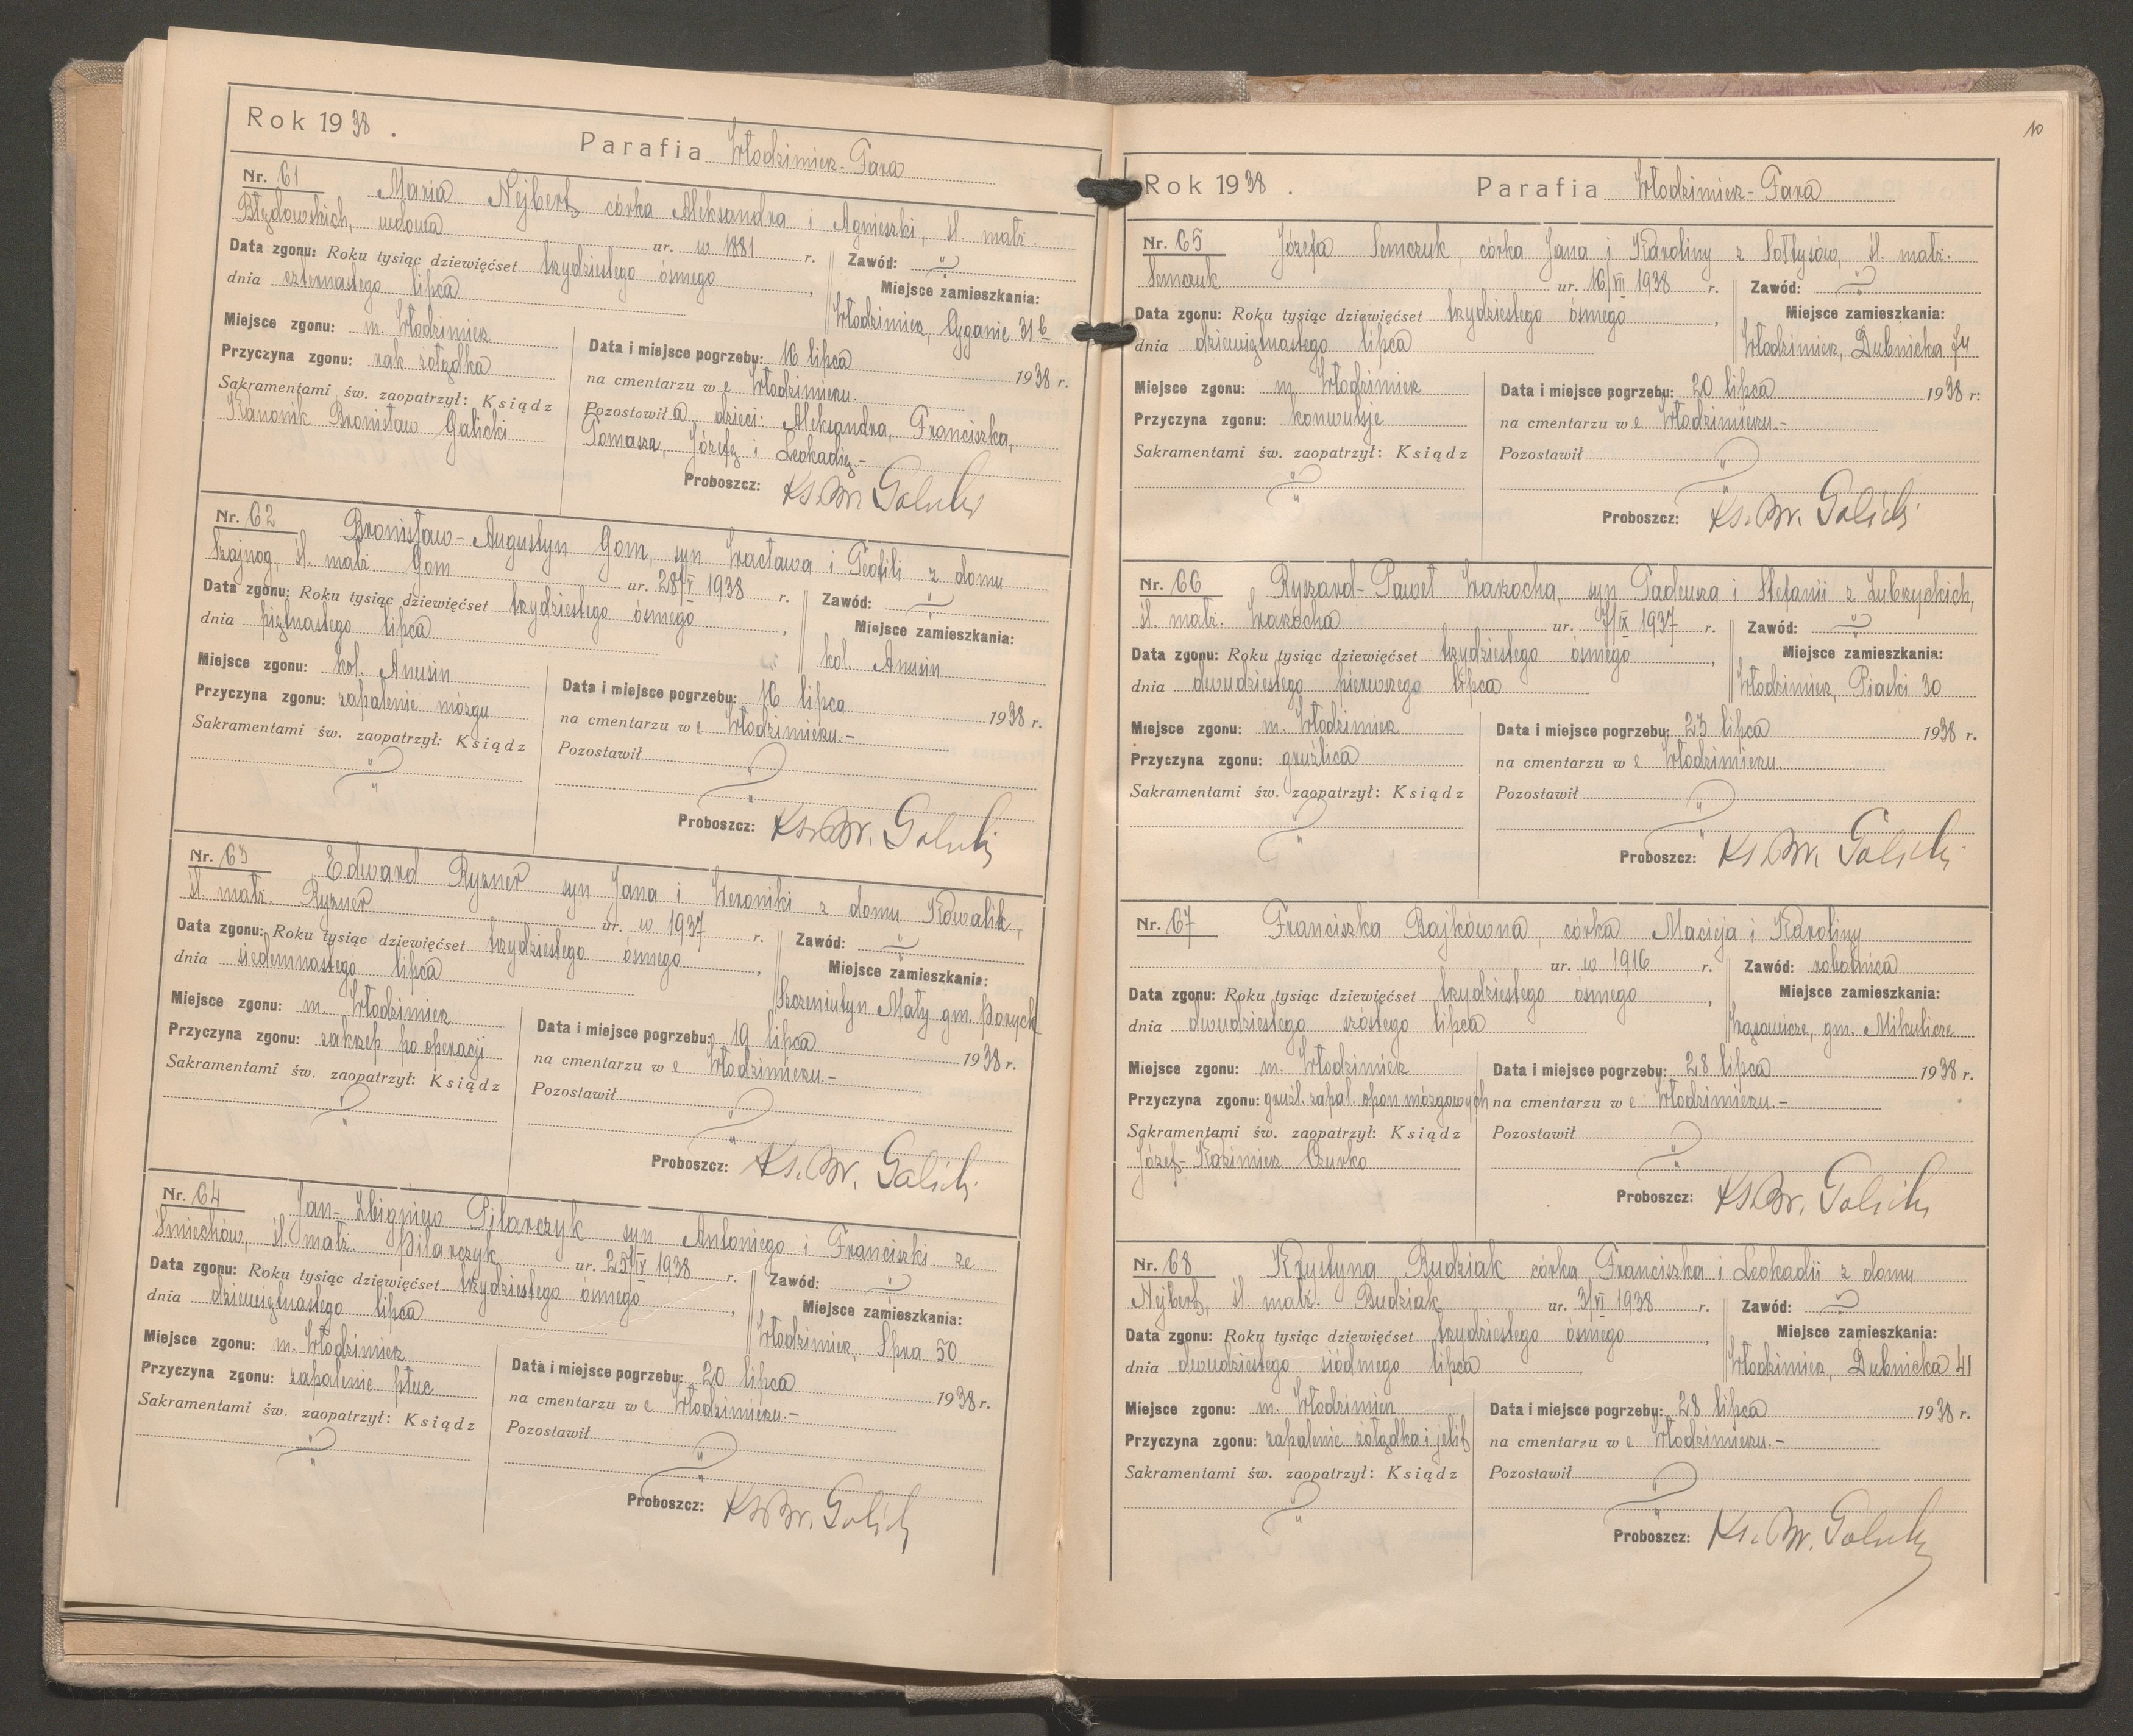 Rok 1938.
Parafia Włodzimierz-Fara
Nr. 61 Maria Nejbert córka Aleksandra i Agnieszki, śl. małż.
Błędowskich, wdowa ur. w 1881 r.
Data zgonu: Roku tysiąc dziewięćset trzydziestego ósmego,
dnia czternastego lipca
Zawód: "
Miejsce zamieszkania:
Włodzimierz, Cyganie 31 b
Miejsce zgonu: m. Włodzimierz
Przyczyna zgonu: rak żołądka
Sakramentami św. zaopatrzył: Ksiądz
Kanonik Bronisław Galicki
Data i miejsce pogrzebu: 16 lipca 1938 r.
na cmentarzu we Włodzimierzu.
Pozostawiła dzieci: Aleksandra, Franciszka,
Tomasza, Józefę i Leokadię.-
Proboszcz: Ks. Br. Galicki
Nr. 62 Bronisław-Augustyn Gom, syn Wacława i Teofili z domu
Szajnog, śl. małż. Gom ur. 28/V 1938 r.
Data zgonu: Roku tysiąc dziewięćset trzydziestego ósmego,
dnia piętnastego lipca
Zawód: "
Miejsce zamieszkania:
kol. Anusin
Miejsce zgonu: kol. Anusin
Przyczyna zgonu: zapalenie mózgu
Sakramentami św. zaopatrzył: Ksiądz
Data i miejsce pogrzebu: 16 lipca 1938 r.
na cmentarzu we Włodzimierzu.-
Pozostawił
Proboszcz: Ks. Br. Galicki
Nr. 63 Edward Ryzner syn Jana i Weroniki z domu Kowalik,
śl. małż. Ryzner ur. w 1937 r.
Data zgonu: Roku tysiąc dziewięćset trzydziestego ósmego,
dnia siedemnastego lipca
Zawód: "
Miejsce zamieszkania:
Szczeniutyn Mały gm. Poryck
Miejsce zgonu: m. Włodzimierz
Przyczyna zgonu: zakrzep po operacji
Sakramentami św. zaopatrzył: Ksiądz
Data i miejsce pogrzebu: 19 lipca 1938 r.
na cmentarzu we Włodzimierzu.-
Pozostawił
Proboszcz: Ks. Br. Galicki
Nr. 64 Jan-Zbigniew Pilarczyk syn Antoniego i Franciszki ze
Śmiechów, śl. małż. Pilarczyk ur. 25/IV 1938 r.
Data zgonu: Roku tysiąc dziewięćset trzydziestego ósmego,
dnia dziewiętnastego lipca
Zawód: "
Miejsce zamieszkania:
Włodzimierz, 50
Miejsce zgonu: m. Włodzimierz
Przyczyna zgonu: zapalenie płuc
Sakramentami św. zaopatrzył: Ksiądz
Data i miejsce pogrzebu: 20 lipca 1938 r.
na cmentarzu we Włodzimierzu.-
Pozostawił
Proboszcz: Ks. Br. Galicki
10
Rok 1938. Parafia Włodzimierz-Fara
Nr. 65 Józefa Semczuk, córka Jana i Karoliny z Sołtysów, śl. małż.
Semczuk ur. 16/VII 1938 r.
Data zgonu: Roku tysiąc dziewięćset trzydziestego ósmego,
dnia dziewiętnastego lipca
Zawód: "
Miejsce zamieszkania:
Włodzimierz, Dubnicka 74
Miejsce zgonu: m. Włodzimierz
Przyczyna zgonu: konwulsje
Sakramentami św. zaopatrzył: Ksiądz
Data i miejsce pogrzebu: 20 lipca 1938 r.
na cmentarzu we Włodzimierzu.-
Pozostawił
Proboszcz: Ks. Br. Galicki
Nr. 66 Ryszard-Paweł Warzocha, syn Tadeusza i Stefanii z Zubrzyckich,
śl. małż. Warzocha ur. 7/IX 1937 r.
Data zgonu: Roku tysiąc dziewięćset trzydziestego ósmego,
dnia dwudziestego pierwszego lipca
Zawód: "
Miejsce zamieszkania:
Włodzimierz, Piaski 30
Miejsce zgonu: m. Włodzimierz
Przyczyna zgonu: gruźlica
Sakramentami św. zaopatrzył: Ksiądz
Data i miejsce pogrzebu: 23 lipca 1938 r.
na cmentarzu we Włodzimierzu.
Pozostawił
Proboszcz: Ks. Br. Galicki
Nr. 67 Franciszka Bajkówna, córka Macieja i Karoliny
ur. w 1916 r.
Data zgonu: Roku tysiąc dziewięćset trzydziestego ósmego,
dnia dwudziestego szóstego lipca
Zawód: robotnica
Miejsce zamieszkania:
gm. Mikulicze
Miejsce zgonu: m. Włodzimierz
Przyczyna zgonu: gruźl. zapal. opon mózgowych
Sakramentami św. zaopatrzył: Ksiądz
Józef-Kazimierz Czurko
Data i miejsce pogrzebu: 28 lipca 1938 r.
na cmentarzu we Włodzimierzu.-
Pozostawił
Proboszcz: Ks. Br. Galicki
Nr. 68 Krystyna Budziak córka Franciszka i Leokadii z domu
Nejbert, śl. małż. Budziak ur. 3/VI 1938 r.
Data zgonu: Roku tysiąc dziewięćset trzydziestego ósmego,
dnia dwudziestego siódmego lipca
Zawód: "
Miejsce zamieszkania:
Włodzimierz, Dubnicka 41
Miejsce zgonu: m. Włodzimierz
Przyczyna zgonu: zapalenie żołądka i jelit
Sakramentami św. zaopatrzył: Ksiądz
Data i miejsce pogrzebu: 28 lipca 1938 r.
na cmentarzu we Włodzimierzu.-
Pozostawił
Proboszcz: Ks. Br. Galicki